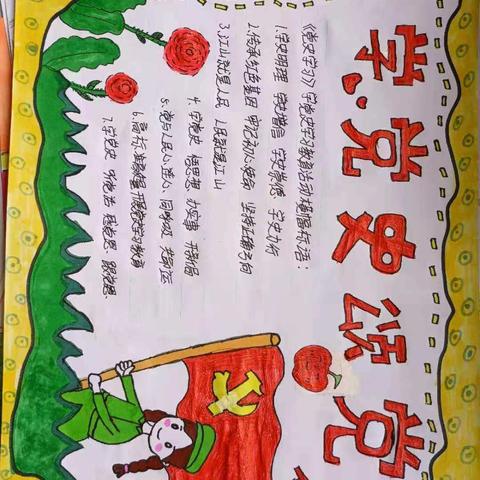 学党史颂党
《党史学习》学党史学习教育活动横幅标语:
1.学史明理 学史增信 学史崇德 学史力行
2.传承红色基因 牢记初心使命 坚持正确方向
3.江山就是人民 人民就是江山
4.学党史 悟思想 办实事 开新局
5.党与民心连心、同呼吸 共命运
6.高标 开展党史学习教育
7.学党史、听党话、感党恩、跟党